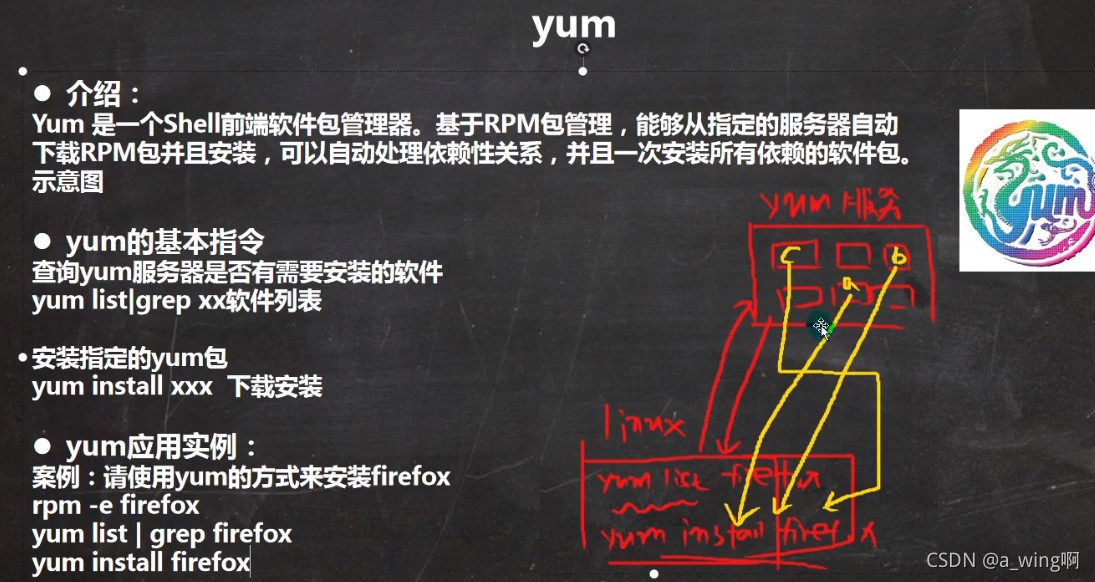 yum
● 介绍：
Yum 是一个Shell前端软件包管理器。基于RPM包管理，能够从指定的服务器自动
下载RPM包并且安装，可以自动处理依赖性关系，并且一次安装所有依赖的软件包。
示意图
● yum的基本指令
查询yum服务器是否有需要安装的软件
yum list|grep xx软件列表
安装指定的yum包
yum install xxx 下载安装
● yum应用实例：
案例：请使用yum的方式来安装firefox
rpm -e firefox
yum list | grep firefox
yum install firefox
yum
yum 服务
c
b
a
linux
yum list firefox
yum install firefox
CSDN @a_wing啊